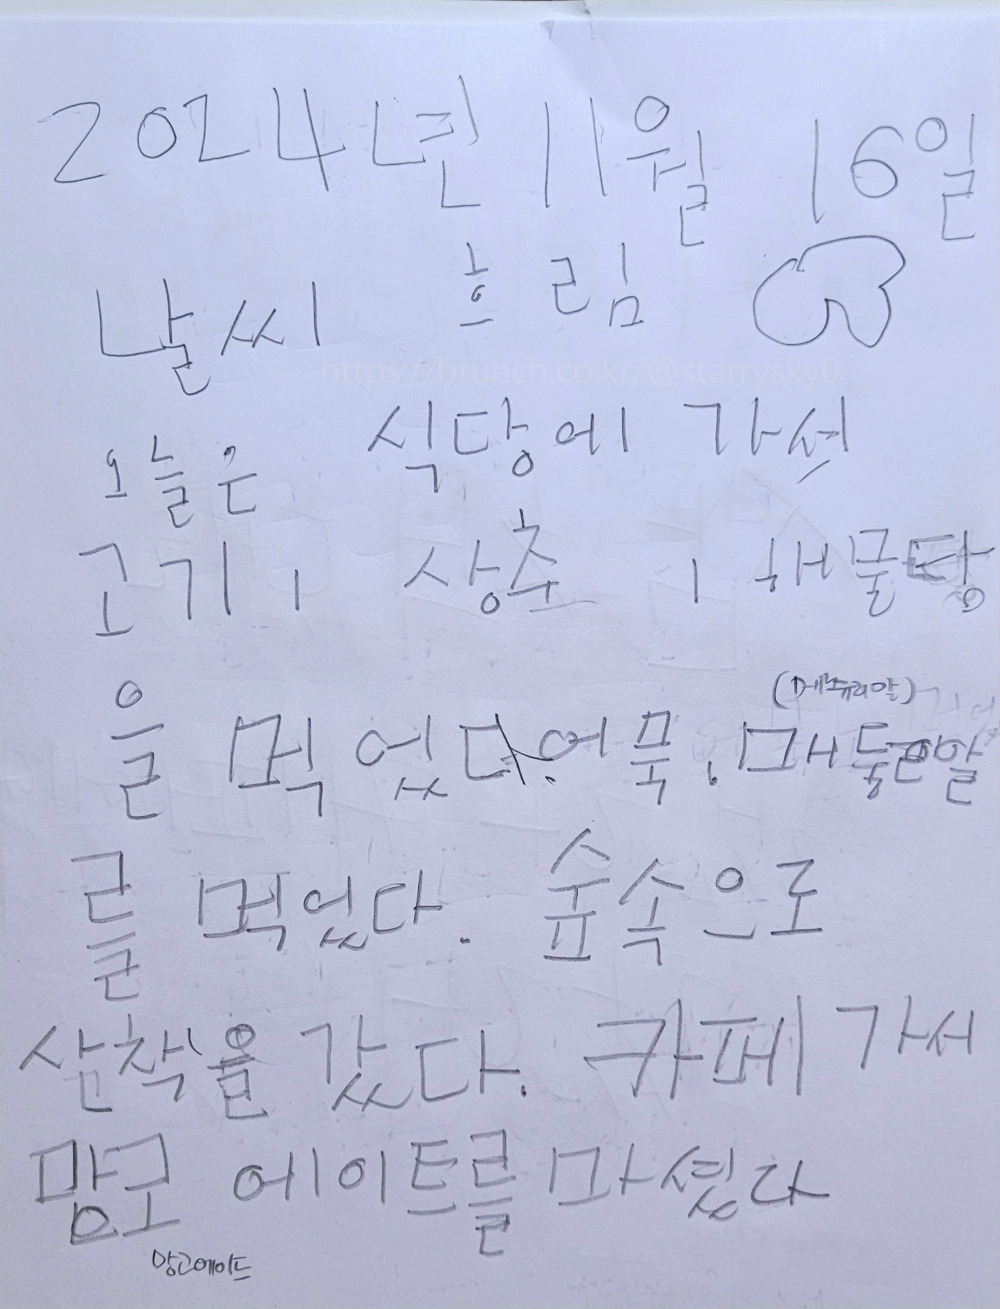 2024년 11월 16일
날씨 흐림
https://brunch.co.kr/@starrysky0
오늘은 식당에 가셔
고기, 상추, 해물탕
을 먹었다. 어묵, 매둘리알
(메추리알)
를 먹었다. 숲속으로
산책을 갔다. 카페 가서
맘모 에이트를 마셨다
망고에이드